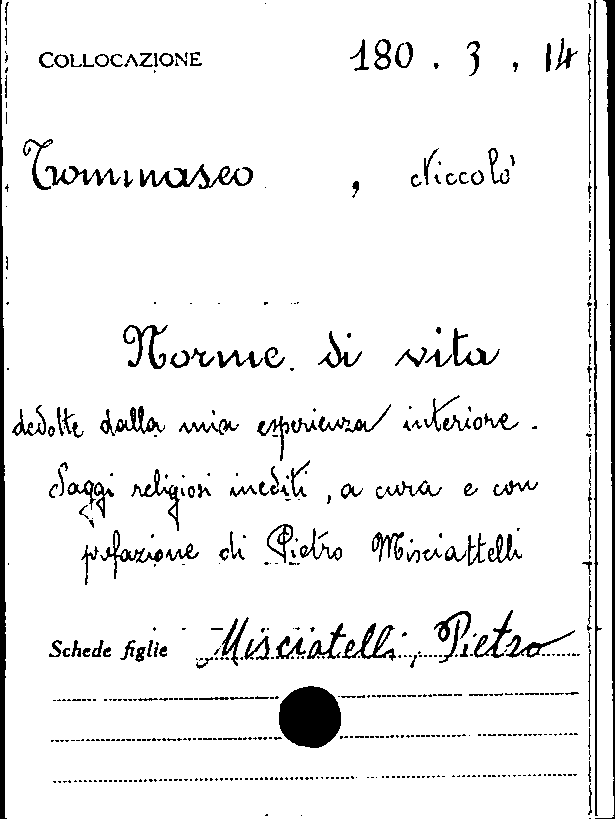 COLLOCAZIONE 180 . 3 . 14
Tommaseo , Niccolò
Norme di vita
dedotte dalla mia esperienza interiore .
Saggi religiosi inediti , a cura e con
prefazione di Pietro Misciattelli
Schede figlie Misciatelli, Pietro